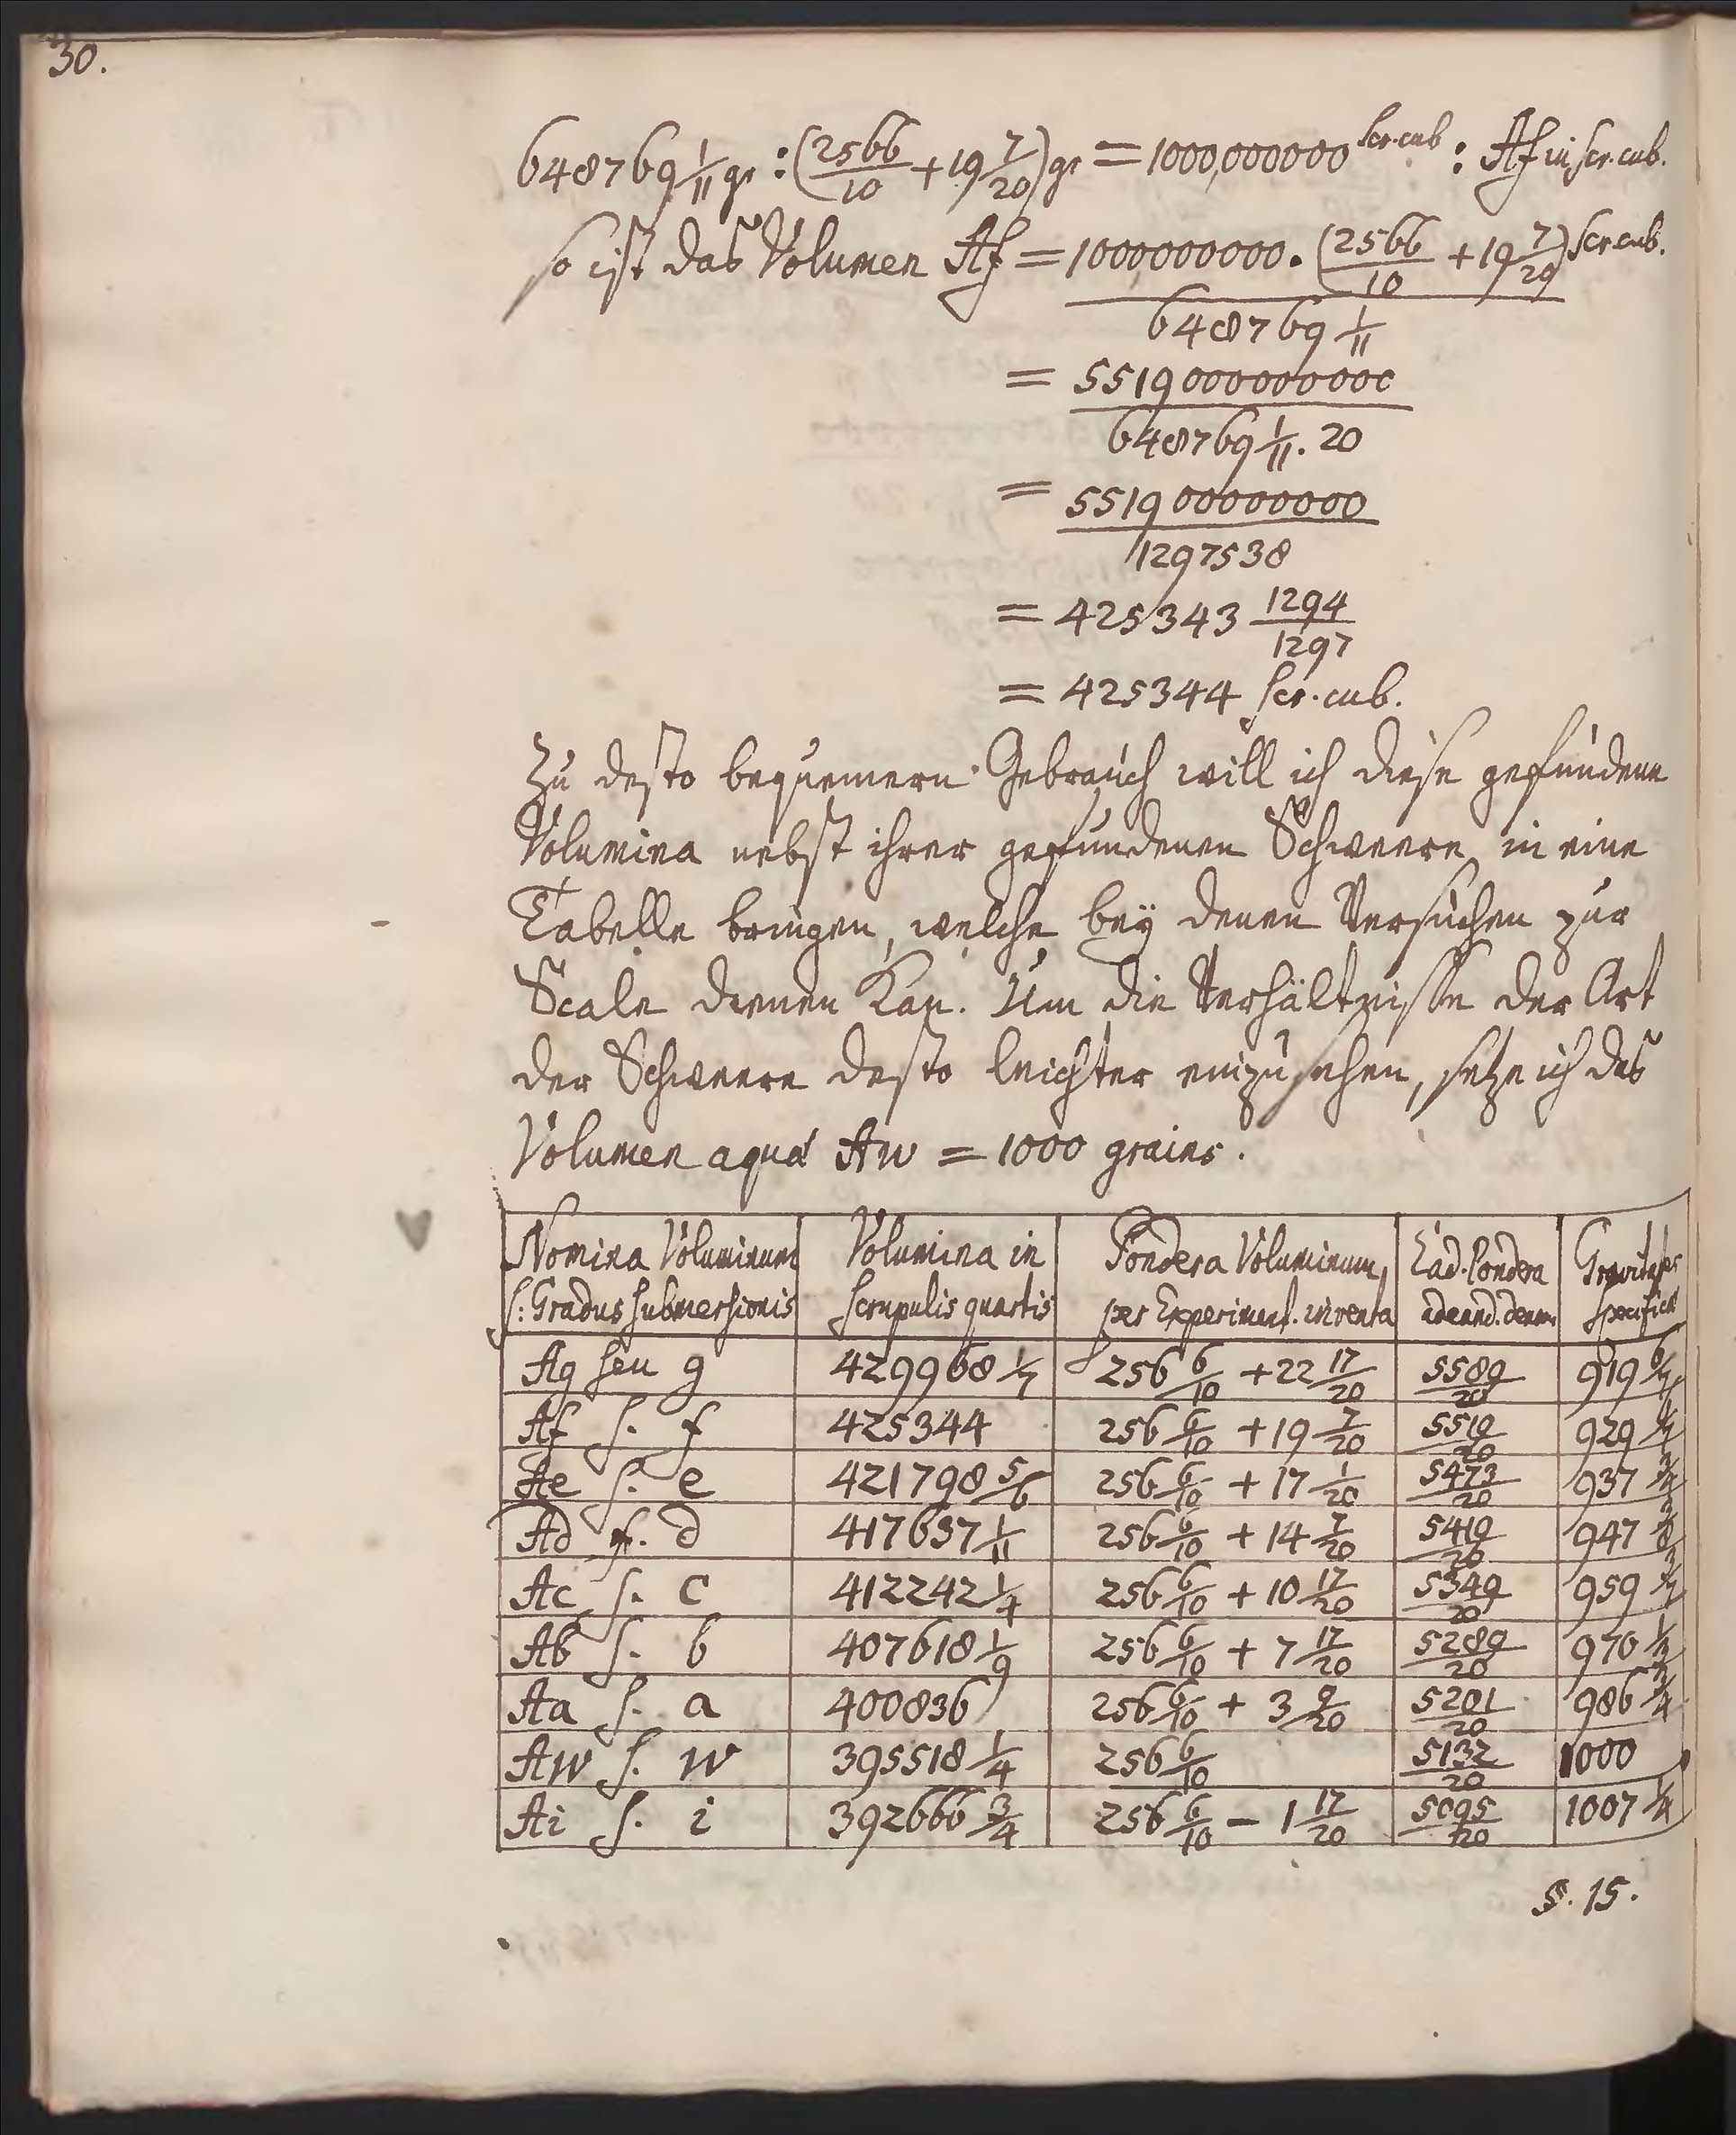 30.
648769 1/11 gr : (2566/10 + 19 7/20) gr = 1000,000000 Scr. cub : Af in scr. cub.
so ist das Volumen Af = 1000000000 . (2566/10 + 19 7/20) Scr. cub.
648769 1/11
= 5519000000000
648769 1/11 . 20
= 551900000000
1297538
= 425343 1294/1297
= 425344 scr. cub.
Zu desto bequemern Gebrauch will ich diese gefundene
Volumina nebst ihrer gefundenen Schweere in eine
Tabelle bringen, welche bey denen Versuchen zur
Scale dienen kan. Um die Verhältnisse der Art
der Schweere desto leichter einzusehen, setze ich das
Volumen aqua Aw = 1000 grains.
Nomina Voluminum Volumina in Pondera Voluminum Ead. Pondera Gravitates
s: Gradus submersionis scrupulis quartis per Experiment. inventa ad eand. denom. specificae
Ag seu g 429968 1/7 256 6/10 + 22 17/20 5589/20 919 6/7
Af s. f 425344 256 6/10 + 19 7/20 5519/20 929 4/7
Ae s. e 421798 5/6 256 6/10 + 17 1/20 5473/20 937 3/4
Ad s. d 417637 1/11 256 6/10 + 14 7/20 5419/20 947 3/8
Ac s. c 412242 1/4 256 6/10 + 10 17/20 5349/20 959 3/7
Ab s. b 407618 1/9 256 6/10 + 7 17/20 5289/20 970 1/3
Aa s. a 400836 256 6/10 + 3 9/20 5201/20 986 3/4
Aw s. w 395518 1/4 256 6/10 5132/20 1000
Ai s. i 392666 3/4 256 6/10 − 1 17/20 5095/20 1007 1/4
§. 15.